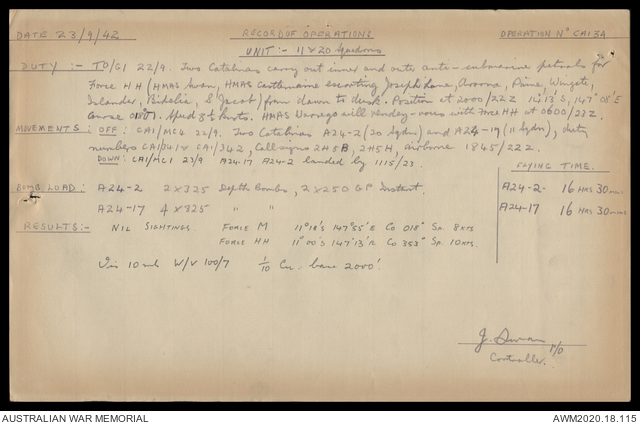 DATE 23/9/42 RECORD OF OPERATIONS OPERATION No CA134
UNIT:- 11 & 20 Squadrons
DUTY :- TO/G1 22/9. Two Catalinas carry out inner and outer anti-submarine patrols for
Force HH (HMAS Swan, HMAS Castlemaine escorting Josephdane, Aroona, Paine, Wingate,
Islander, Bidelia, S Jacob) from dawn to dusk. Position at 2000/22Z 12°13'S, 147°08'E
course 018°. Speed 8½ knots. HMAS Warrego will rendez-vous with Force HH at 0600/23Z.
MOVEMENTS: OFF: CA1/MC4 22/9. Two Catalinas A24-2 (20 Sqdn) and A24-17 (11 Sqdn), duty
numbers CA1341 & CA1342, Callsigns 2H5B, 2H5H, airborne 1845/22Z.
DOWN: CA1/MC1 23/9 A24-17 A24-2 landed by 1115/23.
FLYING TIME.
BOMB LOAD: A24-2 2 x 325 Depth Bombs, 2 x 250 GP Instant. A24-2. 16 HRS 30 mins
A24-17 4 x 325 " " A24-17 16 HRS 30 mins
RESULTS:- NIL SIGHTINGS FORCE M 11°18'S 147°55'E Co 018° Sp. 8 KTS
FORCE HH 11°00'S 147°13'E Co 353° Sp. 10 KTS.
Vis 10 mls W/V 100/7 1/10 Cu. base 2000'.
P/O
Controller.
AUSTRALIAN WAR MEMORIAL AWM2020.18.115